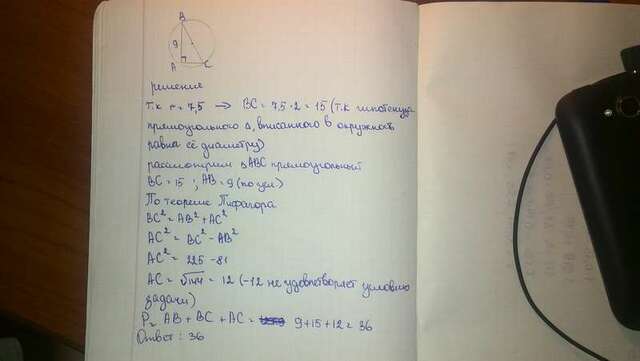 B
9
A C
решение
т.к r = 7,5 → BC = 7,5·2 = 15 (т.к гипотенуза
прямоугольного Δ, вписанного в окружность
равна её диаметру)
рассмотрим Δ ABC прямоугольный
BC = 15 ; AB = 9 (по усл.)
По теореме Пифагора
BC² = AB² + AC²
AC² = BC² - AB²
AC² = 225 - 81
AC = √144 = 12 (-12 не удовлетворяет условию
задачи)
P = AB + BC + AC = 9+15+12 = 36
Ответ: 36